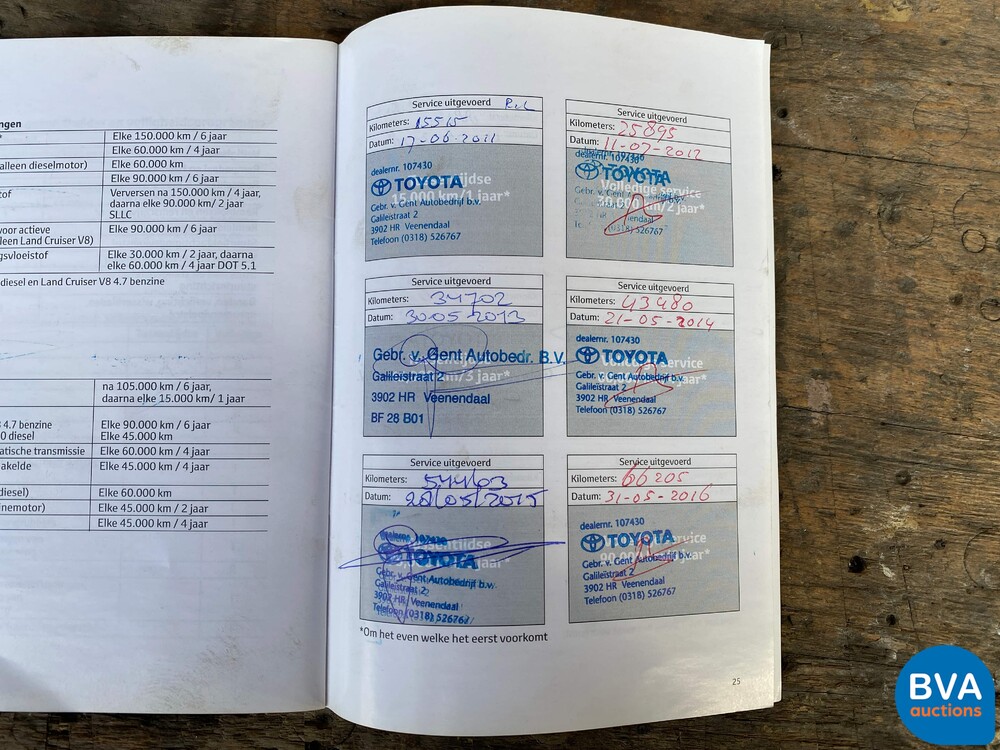 ngen
Elke 150.000 km / 6 jaar
Elke 60.000 km / 4 jaar
alleen dieselmotor) Elke 60.000 km
Elke 90.000 km / 6 jaar
tof Verversen na 150.000 km / 4 jaar,
daarna elke 90.000 km / 2 jaar
SLLC
voor actieve Elke 90.000 km / 6 jaar
leen Land Cruiser V8)
gsvloeistof Elke 30.000 km / 2 jaar, daarna
elke 60.000 km / 4 jaar DOT 5.1
diesel en Land Cruiser V8 4.7 benzine
na 105.000 km / 6 jaar,
daarna elke 15.000 km / 1 jaar
4.7 benzine Elke 90.000 km / 6 jaar
0 diesel Elke 45.000 km
atische transmissie Elke 60.000 km / 4 jaar
akelde Elke 45.000 km / 4 jaar
diesel) Elke 60.000 km
nemotor) Elke 45.000 km / 2 jaar
Elke 45.000 km / 4 jaar
Service uitgevoerd
Kilometers: 15515
Datum: 17-06-2011
dealernr. 107430
TOYOTA
15.000 km/1 jaar*
Gebr. v. Gent Autobedrijf b.v.
Galileistraat 2
3902 HR Veenendaal
Telefoon (0318) 526767
Service uitgevoerd
Kilometers: 25895
Datum: 11-07-2012
dealernr. 107430
TOYOTA
Volledige service
30.000 km/2 jaar*
Gebr. v. Gent
(0318) 526767
Service uitgevoerd
Kilometers: 34702
Datum: 30-05-2013
Gebr. v. Gent Autobedr. B.V.
Galileistraat 2
3902 HR Veenendaal
BF 28 B01
Service uitgevoerd
Kilometers: 43480
Datum: 21-05-2014
dealernr. 107430
TOYOTA
service
Gebr. v. Gent Autobedrijf b.v.
Galileistraat 2
3902 HR Veenendaal
Telefoon (0318) 526767
Service uitgevoerd
Kilometers: 54463
Datum: 28/05/2015
dealernr. 107430
TOYOTA
Gebr. v. Gent Autobedrijf b.v.
Galileistraat 2
3902 HR Veenendaal
Telefoon (0318) 526767
Service uitgevoerd
Kilometers: 66205
Datum: 31-05-2016
dealernr. 107430
TOYOTA
service
90.000
Gebr. v. Gent Autobedrijf b.v.
Galileistraat 2
3902 HR Veenendaal
Telefoon (0318) 526767
*Om het even welke het eerst voorkomt
25
BVA
auctions